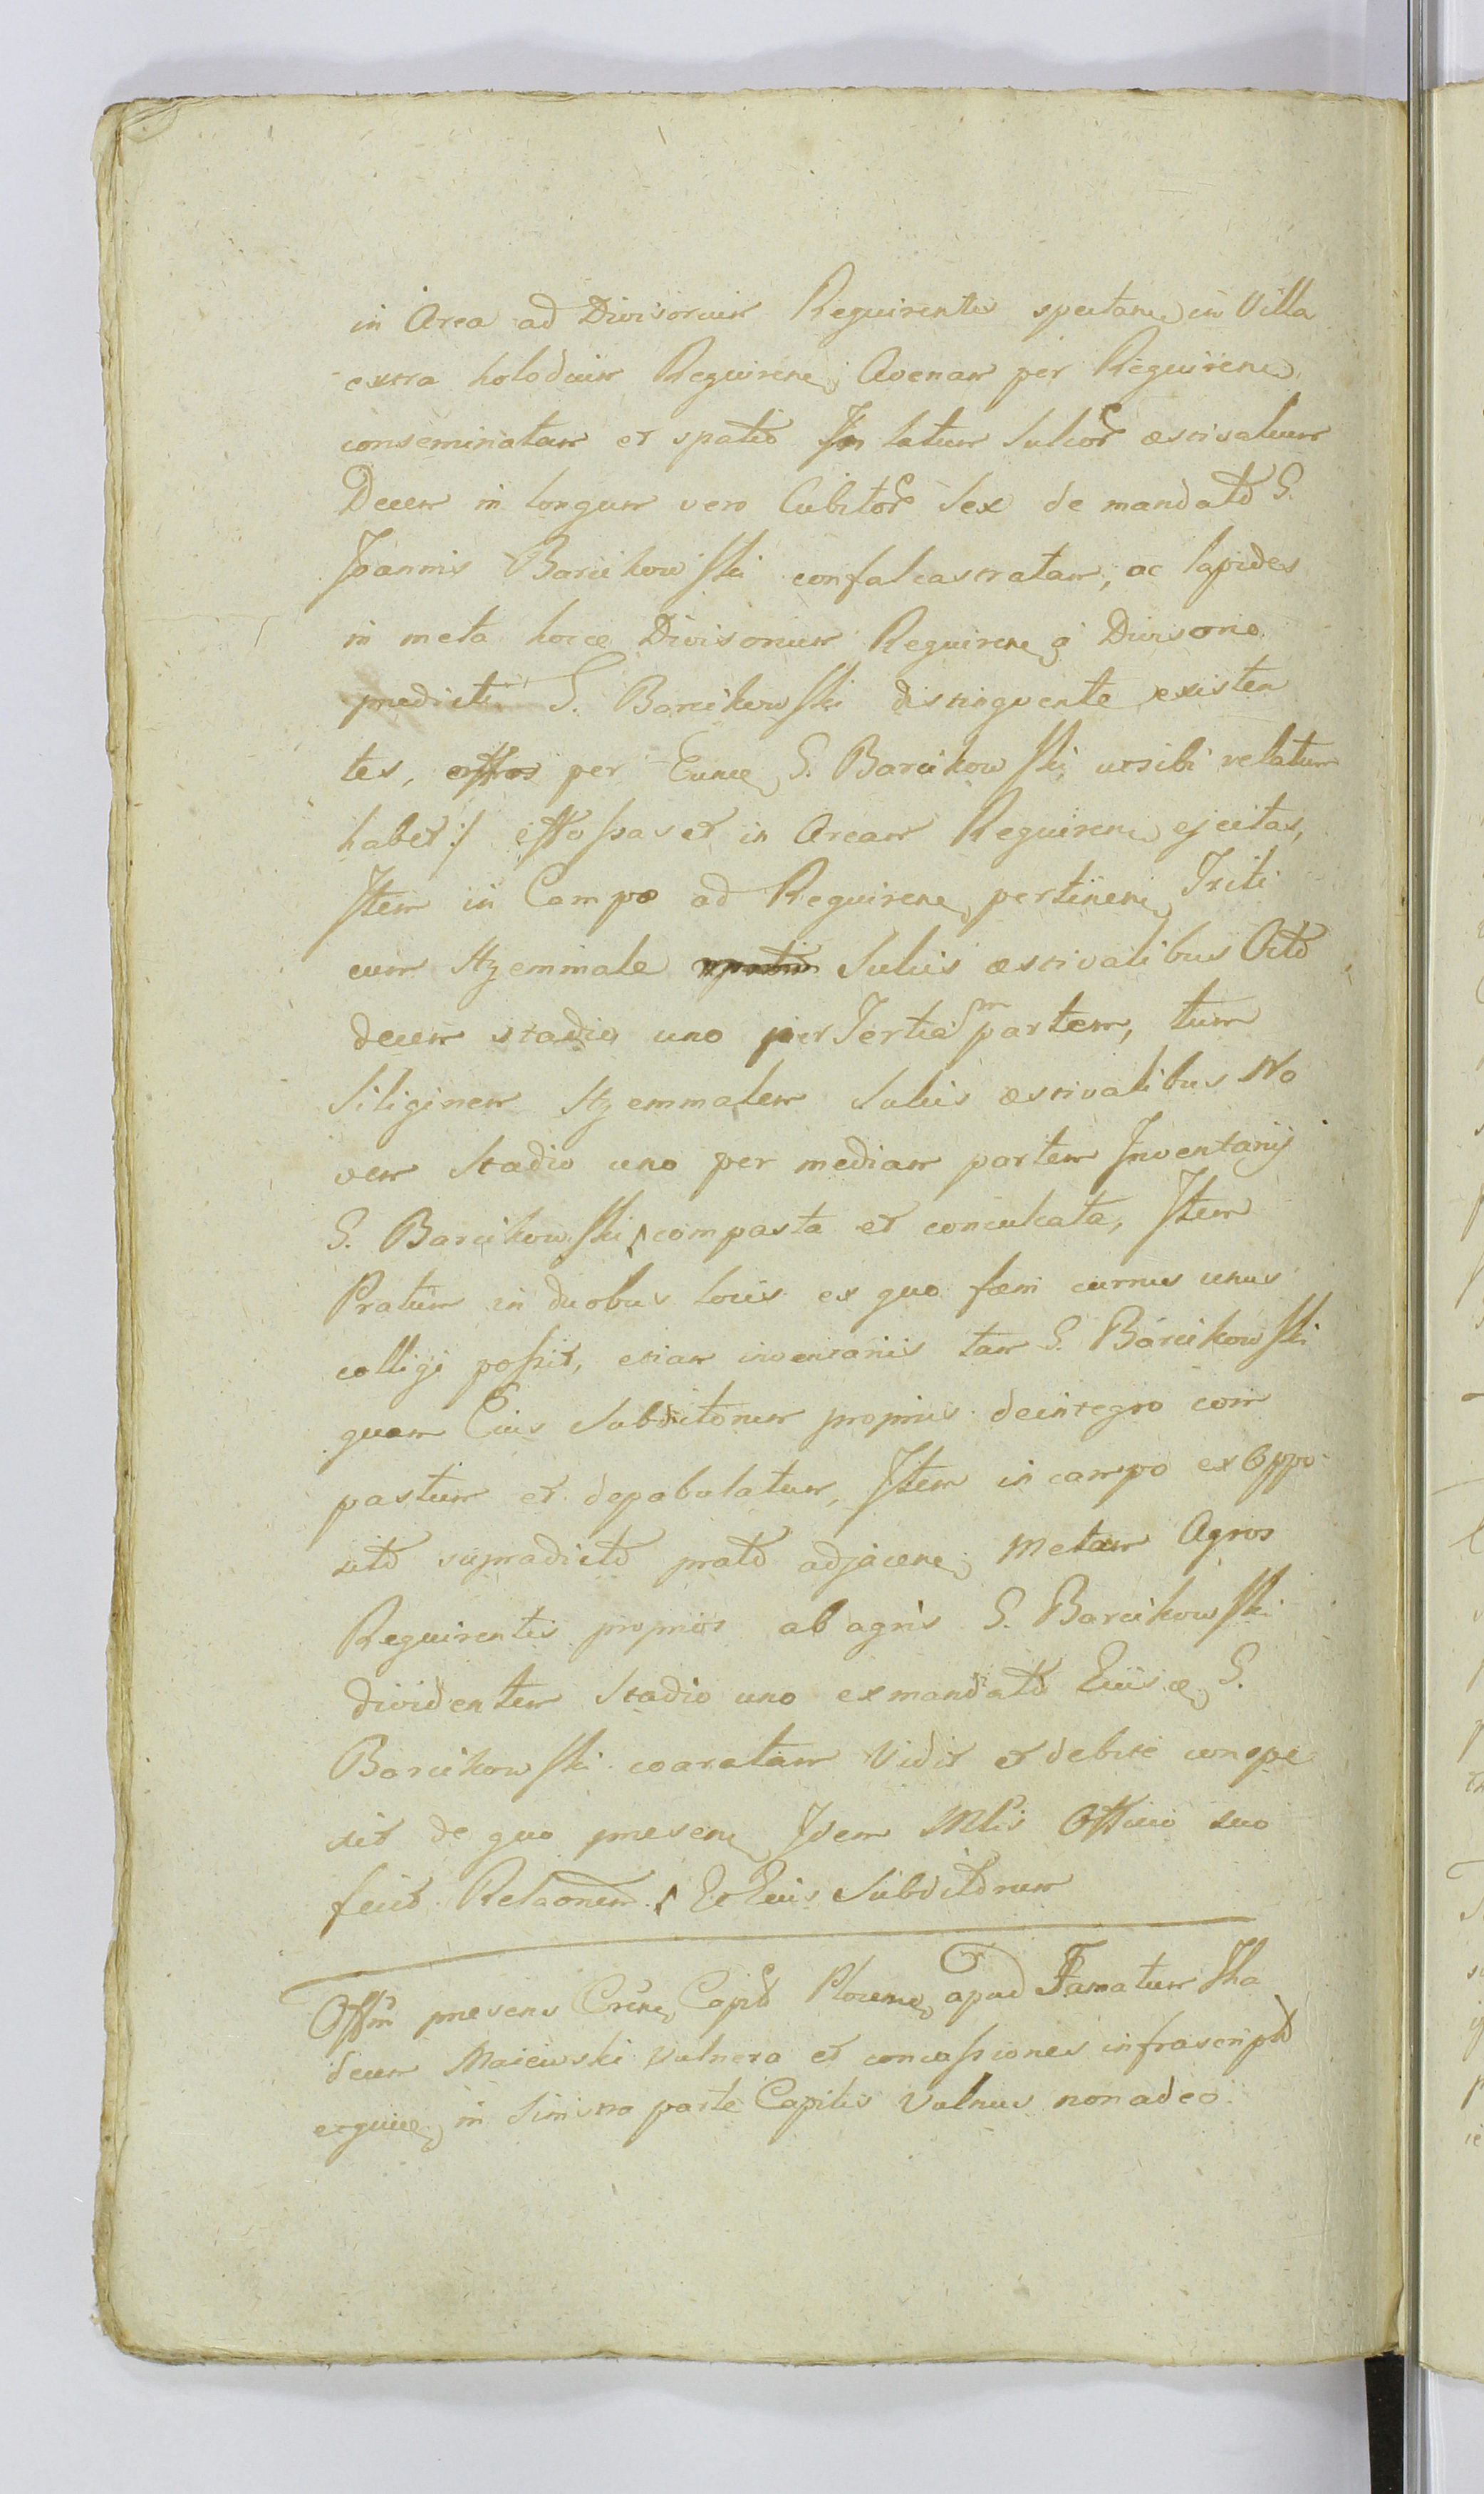 in Area ad Divisorum Requirentis spectane in Villa
extra holodum Requirene, Avenam per Requirene
conseminatam et spatio In latum Sulcor aestivalium
Decem in longum vero Cubitor Sex de mandato G.
Joannis Barcikowski confalcastratam, ac lapides
in meta hocce Divisorium Requirene a Divisorio
praedicti G. Barcikowski distinguente existen
tes, per Eunce G. Barcikowski, ut sibi relatum
habet :/ effossas et in Aream Requirene ejectas,
Item in Campo ad Requirene pertinene Triti
cum Hyemmale Sulcis aestivalibus Octo
decem stadio uno per Tertia m partem, tum
Siliginem Hyemmalem Sulcis aestivalibus No
vem Stadio uno per mediam partem Inventarij
G. Barcikowski compasta et conculcata, Item
Pratum in duobus locis ex quo foeni currus unus
colligi possit, etiam inventariis tam G. Barcikowski
quam Eius Subditorum propriis deintegro com
pastum et depabulatum, Item in campo ex Oppo-
sito supradicto prato adjacene, Metam Agros
Requirentis proprios ab agris G. Barcikowski
dividentem Stadio uno ex mandato Eiusce G.
Barcikowski coaratam Vidit et debite conspe
xit de quo praesene Idem Mlis Officio suo
fecit Relaonem. Et Eius Subditorum
Offm praesens Crene Capit Plocene apud Famatum Tha
deum Maiewski Vulnera et concussiones infrascript
exquive, in Sinistra parte Capitis Vulnus non adeo